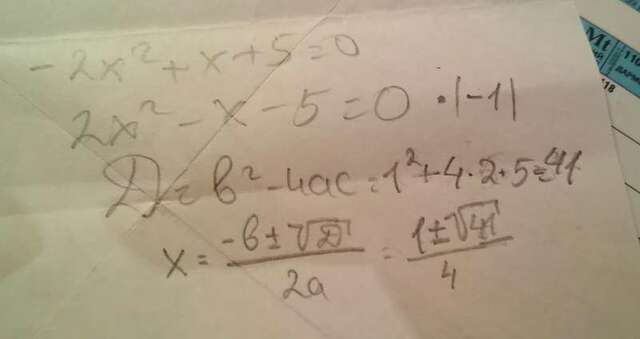 -2x² + x + 5 = 0
2x² - x - 5 = 0 · |-1|
D = b² - 4ac = 1² + 4 · 2 · 5 = 41
x = \frac{-b ± \sqrt{D}}{2a} = \frac{1 ± \sqrt{41}}{4}
Mt
110